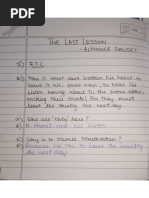 THE LAST LESSON
- ALPHONSE DAUDET
S) R.T.C
Q1) How it must have broken his heart to
leave it all, poor man; to hear his
sister moving about in the room above,
packing their trunks! For they must
leave the country the next day.
a) Who are they here?
A) M. Hamel and his sister.
b) Why is M. Hamel heartbroken?
A) Because he has to leave the country
the next day.